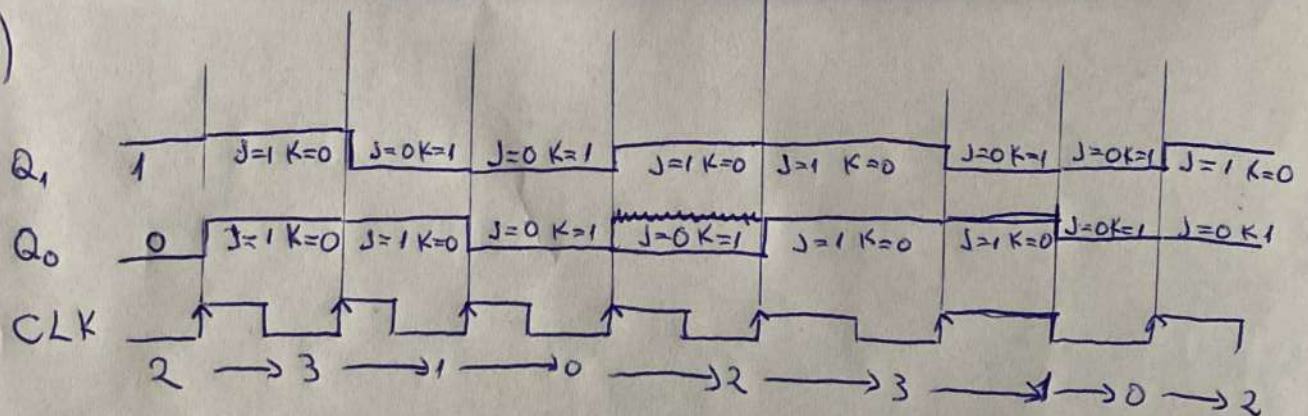 )
Q₁ 1 J=1 K=0 J=0 K=1 J=0 K=1 J=1 K=0 J=1 K=0 J=0 K=1 J=0 K=1 J=1 K=0
Q₀ 0 J=1 K=0 J=1 K=0 J=0 K=1 J=0 K=1 J=1 K=0 J=1 K=0 J=0 K=1 J=0 K1
CLK
2 → 3 → 1 → 0 → 2 → 3 → 1 → 0 → 2